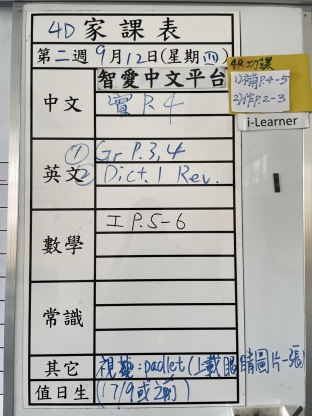 4D 家課表
第二週 9月12日(星期四)
智愛中文平台
中文
實 P.4
英文
① Gr P.3,4
② Dict.1 Rev.
數學
工 P.5-6
常識
其它
視藝:padlet(上載眼睛圖片一張)
值日生
(17/9或之前)
4R 功課
1)補P.4-5
2)作P.2-3
i-Learner